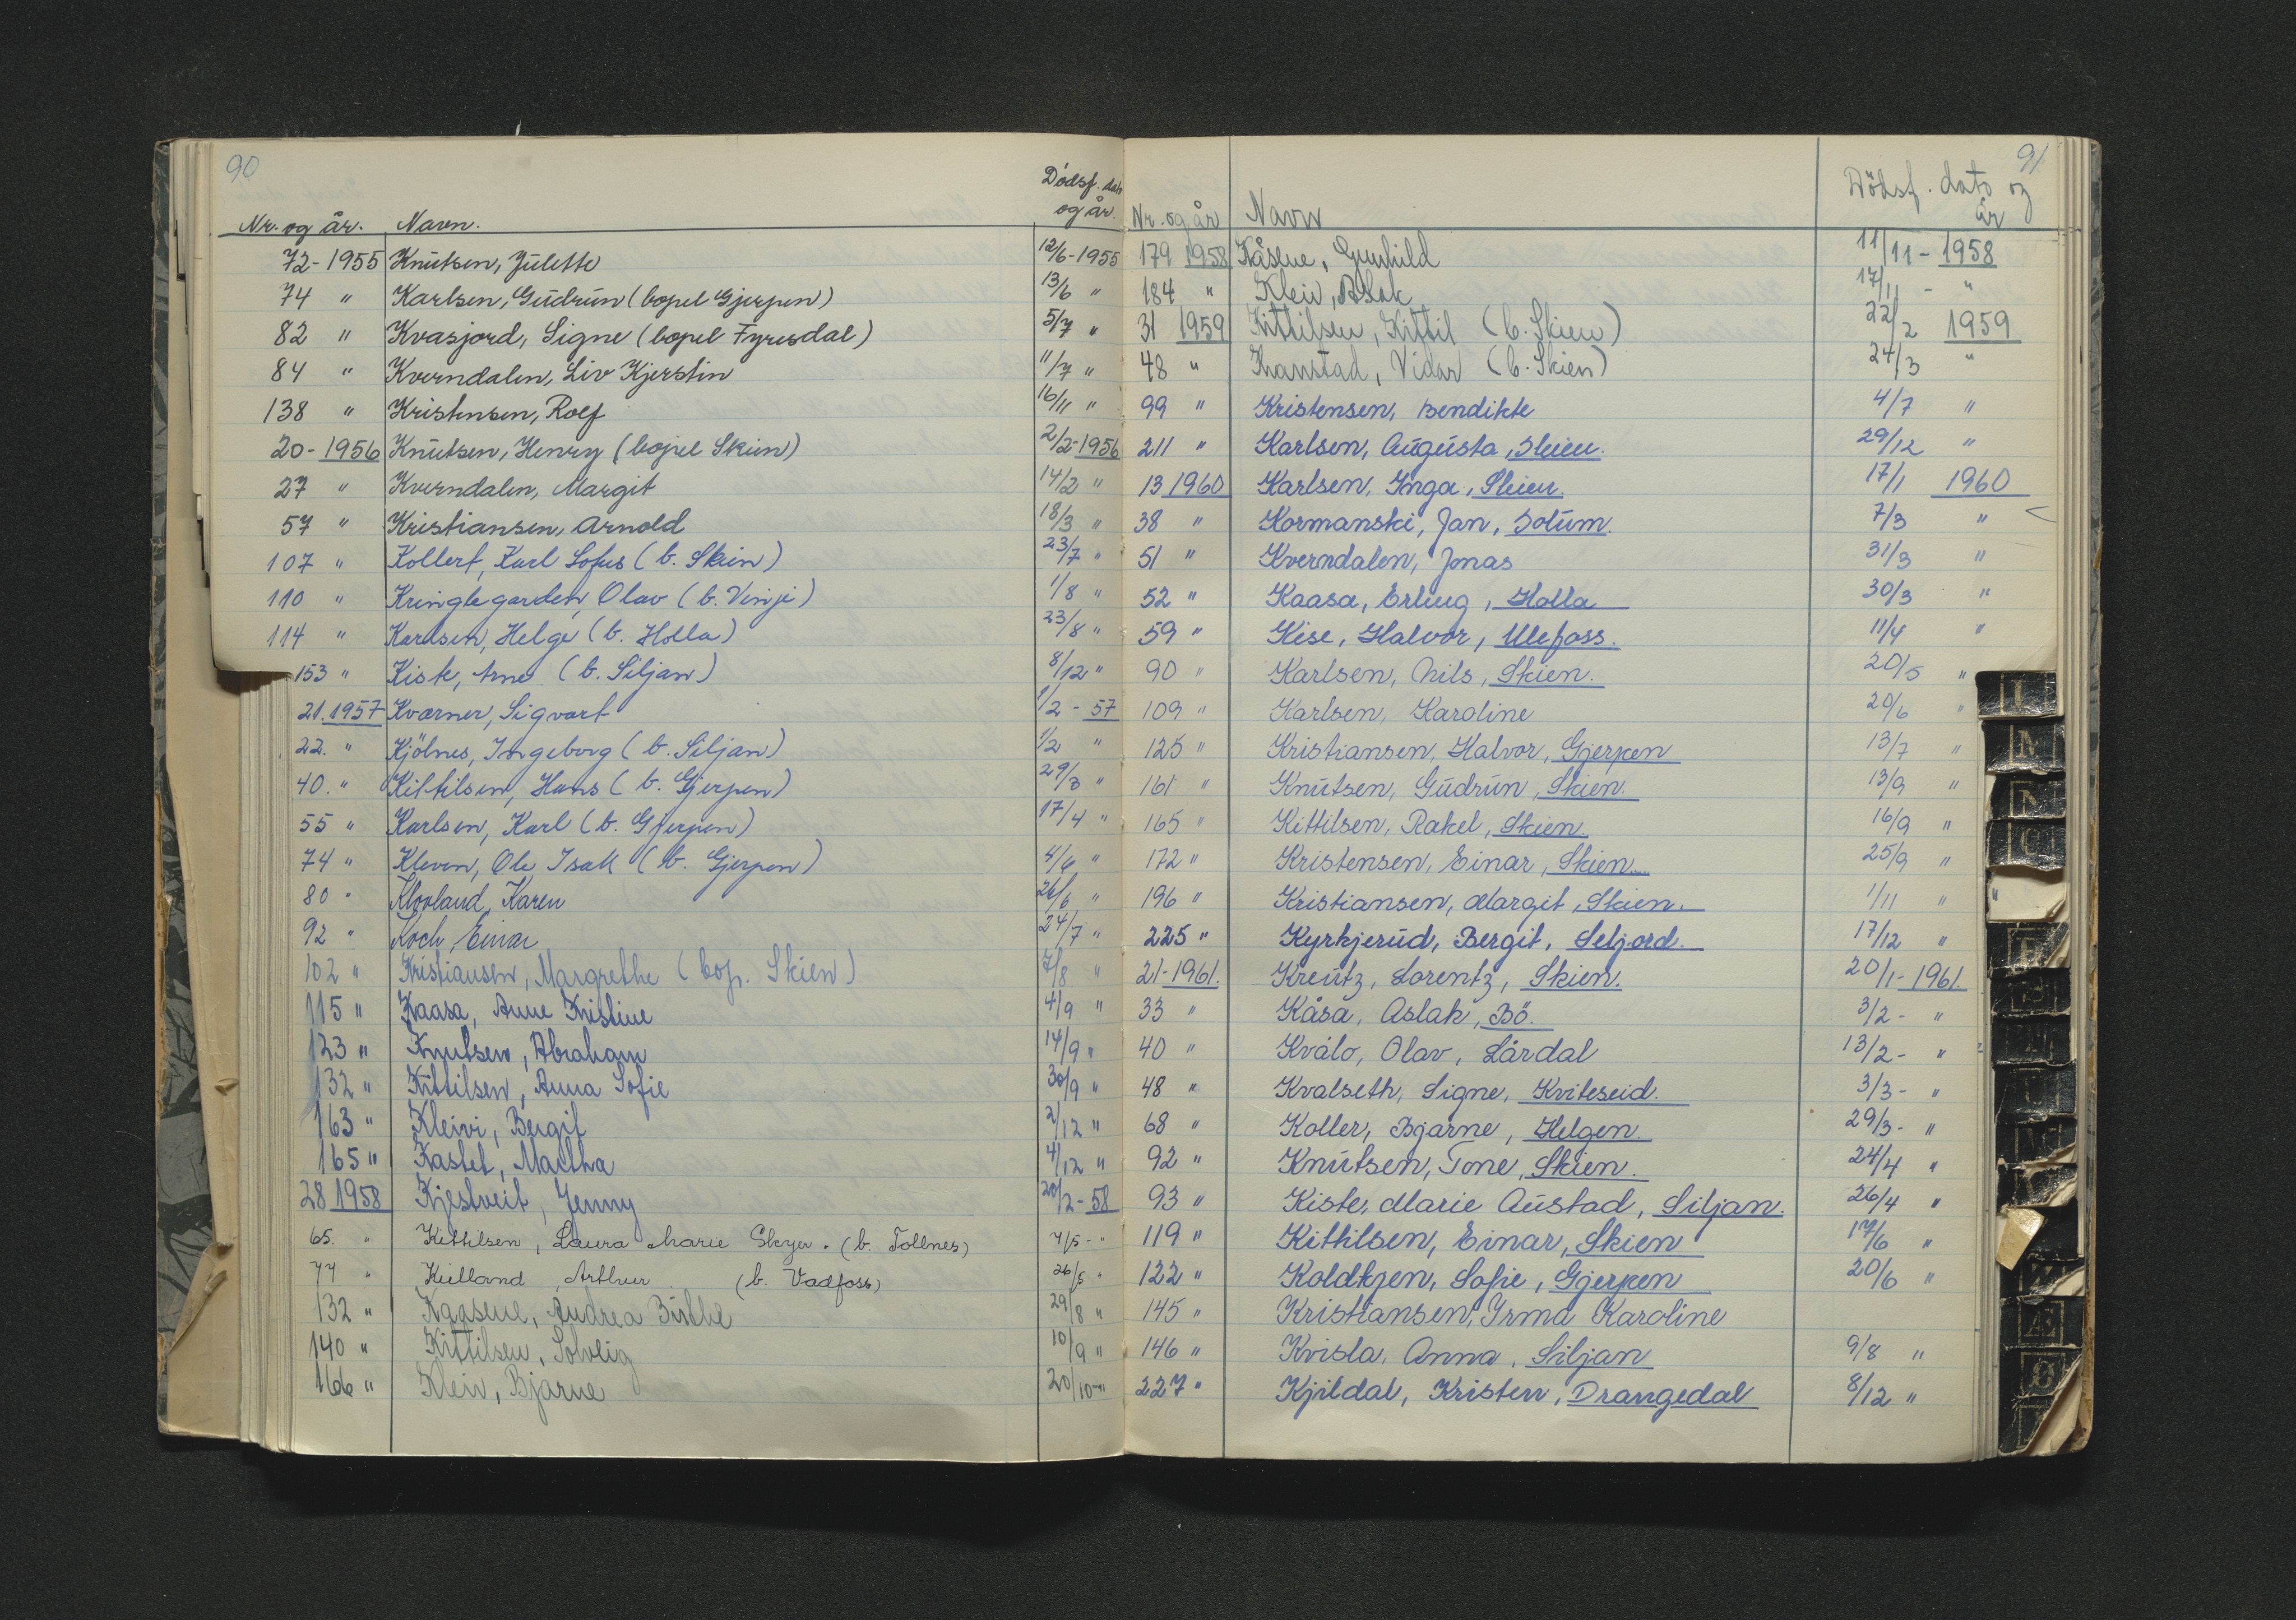 90
Nr. og år. Navn. Dødsf. dato og år.
72-1955 Knutsen, Julette 12/6-1955
74 " Karlsen, Gudrun (bopel Gjerpen) 13/6 "
82 " Kvasjord, Signe (bopel Fyresdal) 5/7 "
84 " Kverndalen, Liv Kjerstin 11/7 "
138 " Kristensen, Rolf 16/11 "
20-1956 Knutsen, Henry (bopel Skien) 2/2-1956
27 " Kverndalen, Margit 14/2 "
57 " Kristiansen, Arnold 18/3 "
107 " Kollert, Karl Sofus (b. Skien) 23/7 "
110 " Kringlegarden, Olav (b. Vinje) 1/8 "
114 " Karlsen, Helge (b. Holla) 23/8 "
153 " Kiste, Arne (b. Siljan) 8/12 "
21. 1957 Kværner, Sigvart 1/2 - 57
22. " Kjölnes, Ingeborg (b. Siljan) 1/2 "
40. " Kittilsen, Hans (b. Gjerpen) 29/3 "
55 " Karlsen, Karl (b. Gjerpen) 17/4 "
74 " Kleven, Ole Isak (b. Gjerpen) 4/6 "
80 " Klovland, Karen 26/6 "
92 " Koch, Einar 24/7 "
102 " Kristiansen, Margrethe (bop. Skien) 7/8 "
115 " Kaasa, Anne Kristine 4/9 "
123 " Knutsen, Abraham 14/9 "
132 " Kittilsen, Anna Sofie 30/9 "
163 " Kleivi, Bergit 2/12 "
165 " Kastet, Martha 4/12 "
28 1958 Kjestveit, Jenny 20/2 - 58
65. " Kittilsen, Laura Marie (b. Tollnes) 7/5 - "
77 " Kielland, Arthur (b. Vadfoss) 26/5 "
132 " Kaasene, Andrea Birthe 29/8 "
140 " Kittilsen, Solveig 10/9 "
166 " Kleiv, Bjarne 20/10 "
91
Nr. og år Navn Dödsf. dato og år
179 1958 Kåsene, Gunhild 11/11 - 1958
184 " Kleiv, Aslak 17/11 - "
31 1959 Kittilsen, Kittil (b. Skien) 22/2 1959
48 " Kanstad, Vidar (b. Skien) 24/3 "
99 " Kristensen, Bendikte 4/7 "
211 " Karlsen, Augusta, Skien. 29/12 "
13 1960 Karlsen, Inga, Skien. 17/1 1960
38 " Kormanski, Jan, Solum. 7/3 "
51 " Kverndalen, Jonas 31/3 "
52 " Kaasa, Erling, Holla 30/3 "
59 " Kise, Halvor, Ulefoss. 11/4 "
90 " Karlsen, Nils, Skien. 20/5 "
109 " Karlsen, Karoline 20/6 "
125 " Kristiansen, Halvor, Gjerpen 13/7 "
161 " Knutsen, Gudrun, Skien. 13/9 "
165 " Kittilsen, Rakel, Skien. 16/9 "
172 " Kristensen, Einar, Skien. 25/9 "
196 " Kristiansen, Margit, Skien. 1/11 "
225 " Kyrkjerud, Bergit, Seljord. 17/12 "
21-1961. Kreutz, Lorentz, Skien. 20/1-1961.
33 " Kåsa, Aslak, Bö. 3/2- "
40 " Kvålo, Olav, Lårdal 13/2- "
48 " Kvalseth, Signe, Kviteseid. 3/3- "
68 " Koller, Bjarne, Helgen. 29/3- "
92 " Knutsen, Tone, Skien. 24/4 "
93 " Kiste, Marie Austad, Siljan. 26/4 "
119 " Kittilsen, Einar, Skien 17/6 "
122 " Koldkjen, Sofie, Gjerpen 20/6 "
145 " Kristiansen, Irma Karoline
146 " Kvisla, Anna, Siljan 9/8 "
227 " Kjildal, Kristen, Drangedal 8/12 "
M
N
O
Æ
Ø